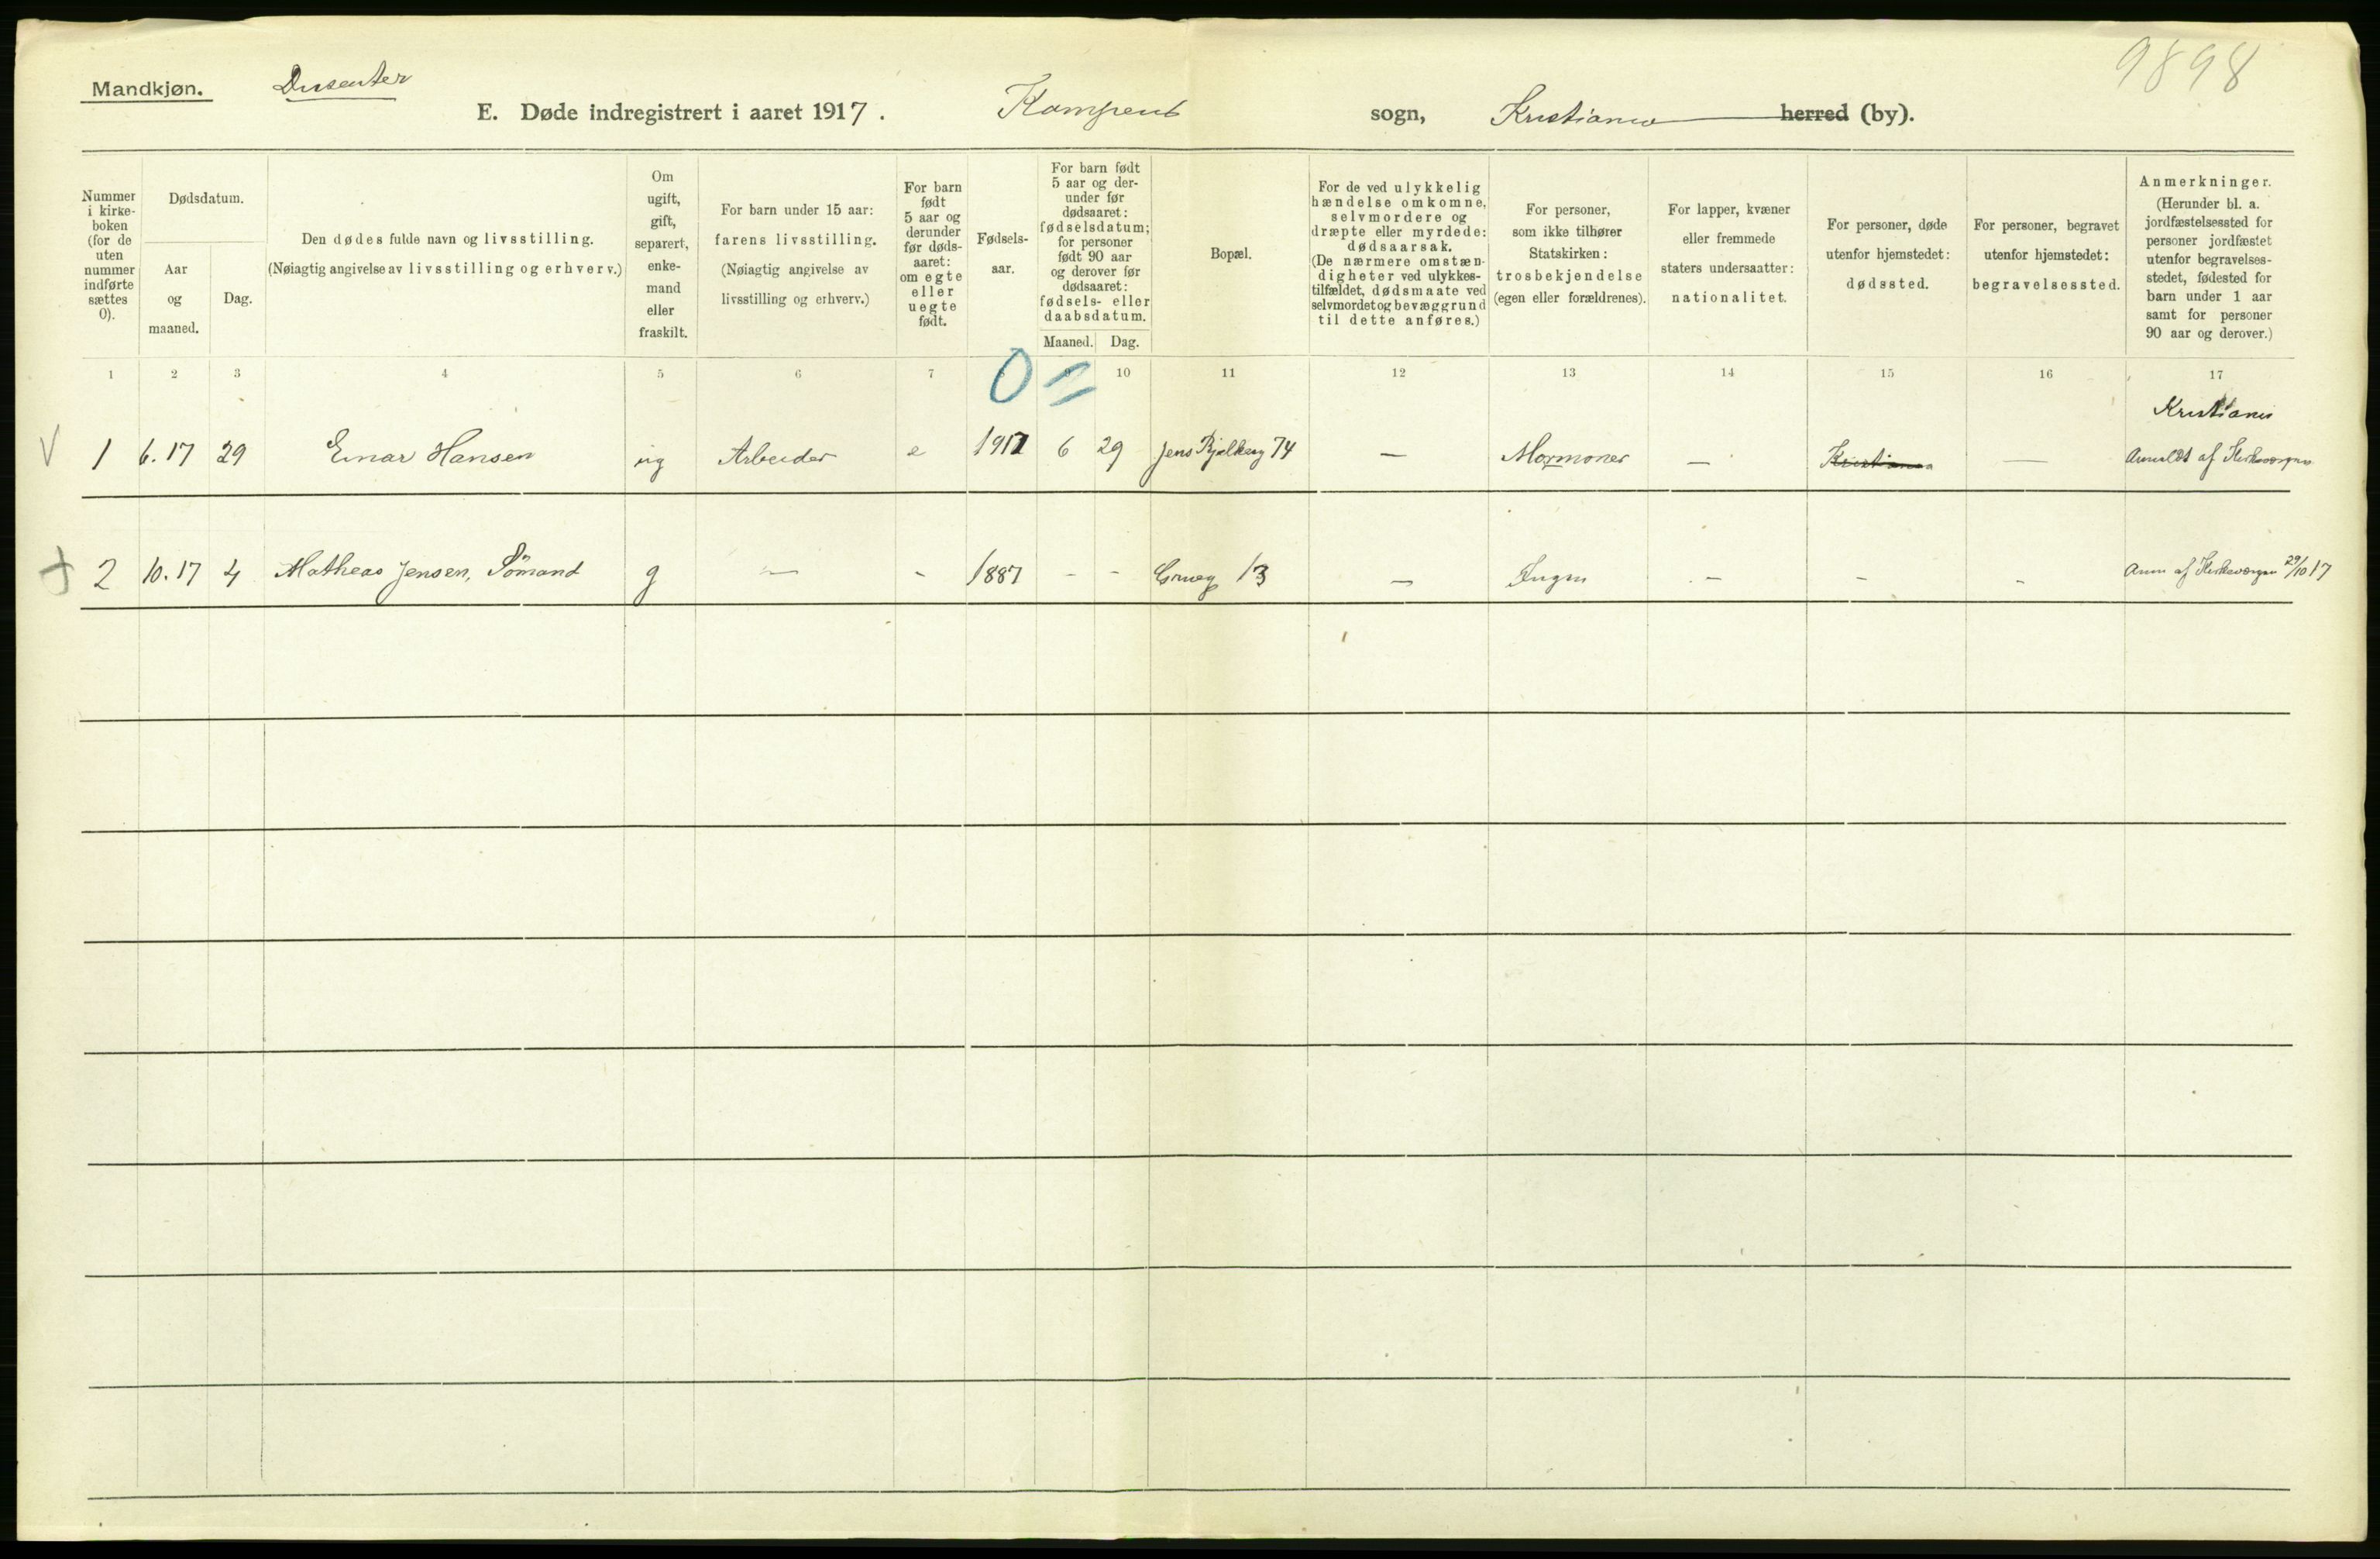 9898
Mandkjøn. Dissenter
E. Døde indregistrert i aaret 1917. Kampens sogn, Kristiania herred (by).
Nummer i kirke-boken (for de uten nummer indførte sættes 0).
Dødsdatum.
Aar og maaned.
Dag.
Den dødes fulde navn og livsstilling.
(Nøiagtig angivelse av livsstilling og erhverv.)
Om ugift, gift, separert, enke-mand eller fraskilt.
For barn under 15 aar: farens livsstilling.
(Nøiagtig angivelse av livsstilling og erhverv.)
For barn født 5 aar og derunder før døds-aaret: om egte eller uegte født.
Fødsels-aar.
For barn født 5 aar og der-under før dødsaaret: fødselsdatum; for personer født 90 aar og derover før dødsaaret: fødsels- eller daabsdatum.
Maaned. Dag.
Bopæl.
For de ved ulykkelig hændelse omkomne, selvmordere og dræpte eller myrdede: dødsaarsak.
(De nærmere omstæn-digheter ved ulykkes-tilfældet, dødsmaate ved selvmordet og bevæggrund til dette anføres.)
For personer, som ikke tilhører Statskirken: trosbekjendelse (egen eller forældrenes).
For lapper, kvæner eller fremmede staters undersaatter: nationalitet.
For personer, døde utenfor hjemstedet: dødssted.
For personer, begravet utenfor hjemstedet: begravelsessted.
Anmerkninger.
(Herunder bl. a. jordfæstelsessted for personer jordfæstet utenfor begravelses-stedet, fødested for barn under 1 aar samt for personer 90 aar og derover.)
1 2 3 4 5 6 7 0 = 10 11 12 13 14 15 16 17
Kristiania
V 1 6.17 29 Einar Hansen ug Arbeider e 1917 6 29 Jens Bjelkesg 74 — Mormoner — Kristiania — Anmeldt af Kirkeværgen
+ 2 10.17 4 Matheas Jensen, Sömand g — - 1887 - - 13 — Ingen - - - Anm af Kirkeværgen 29/10 17